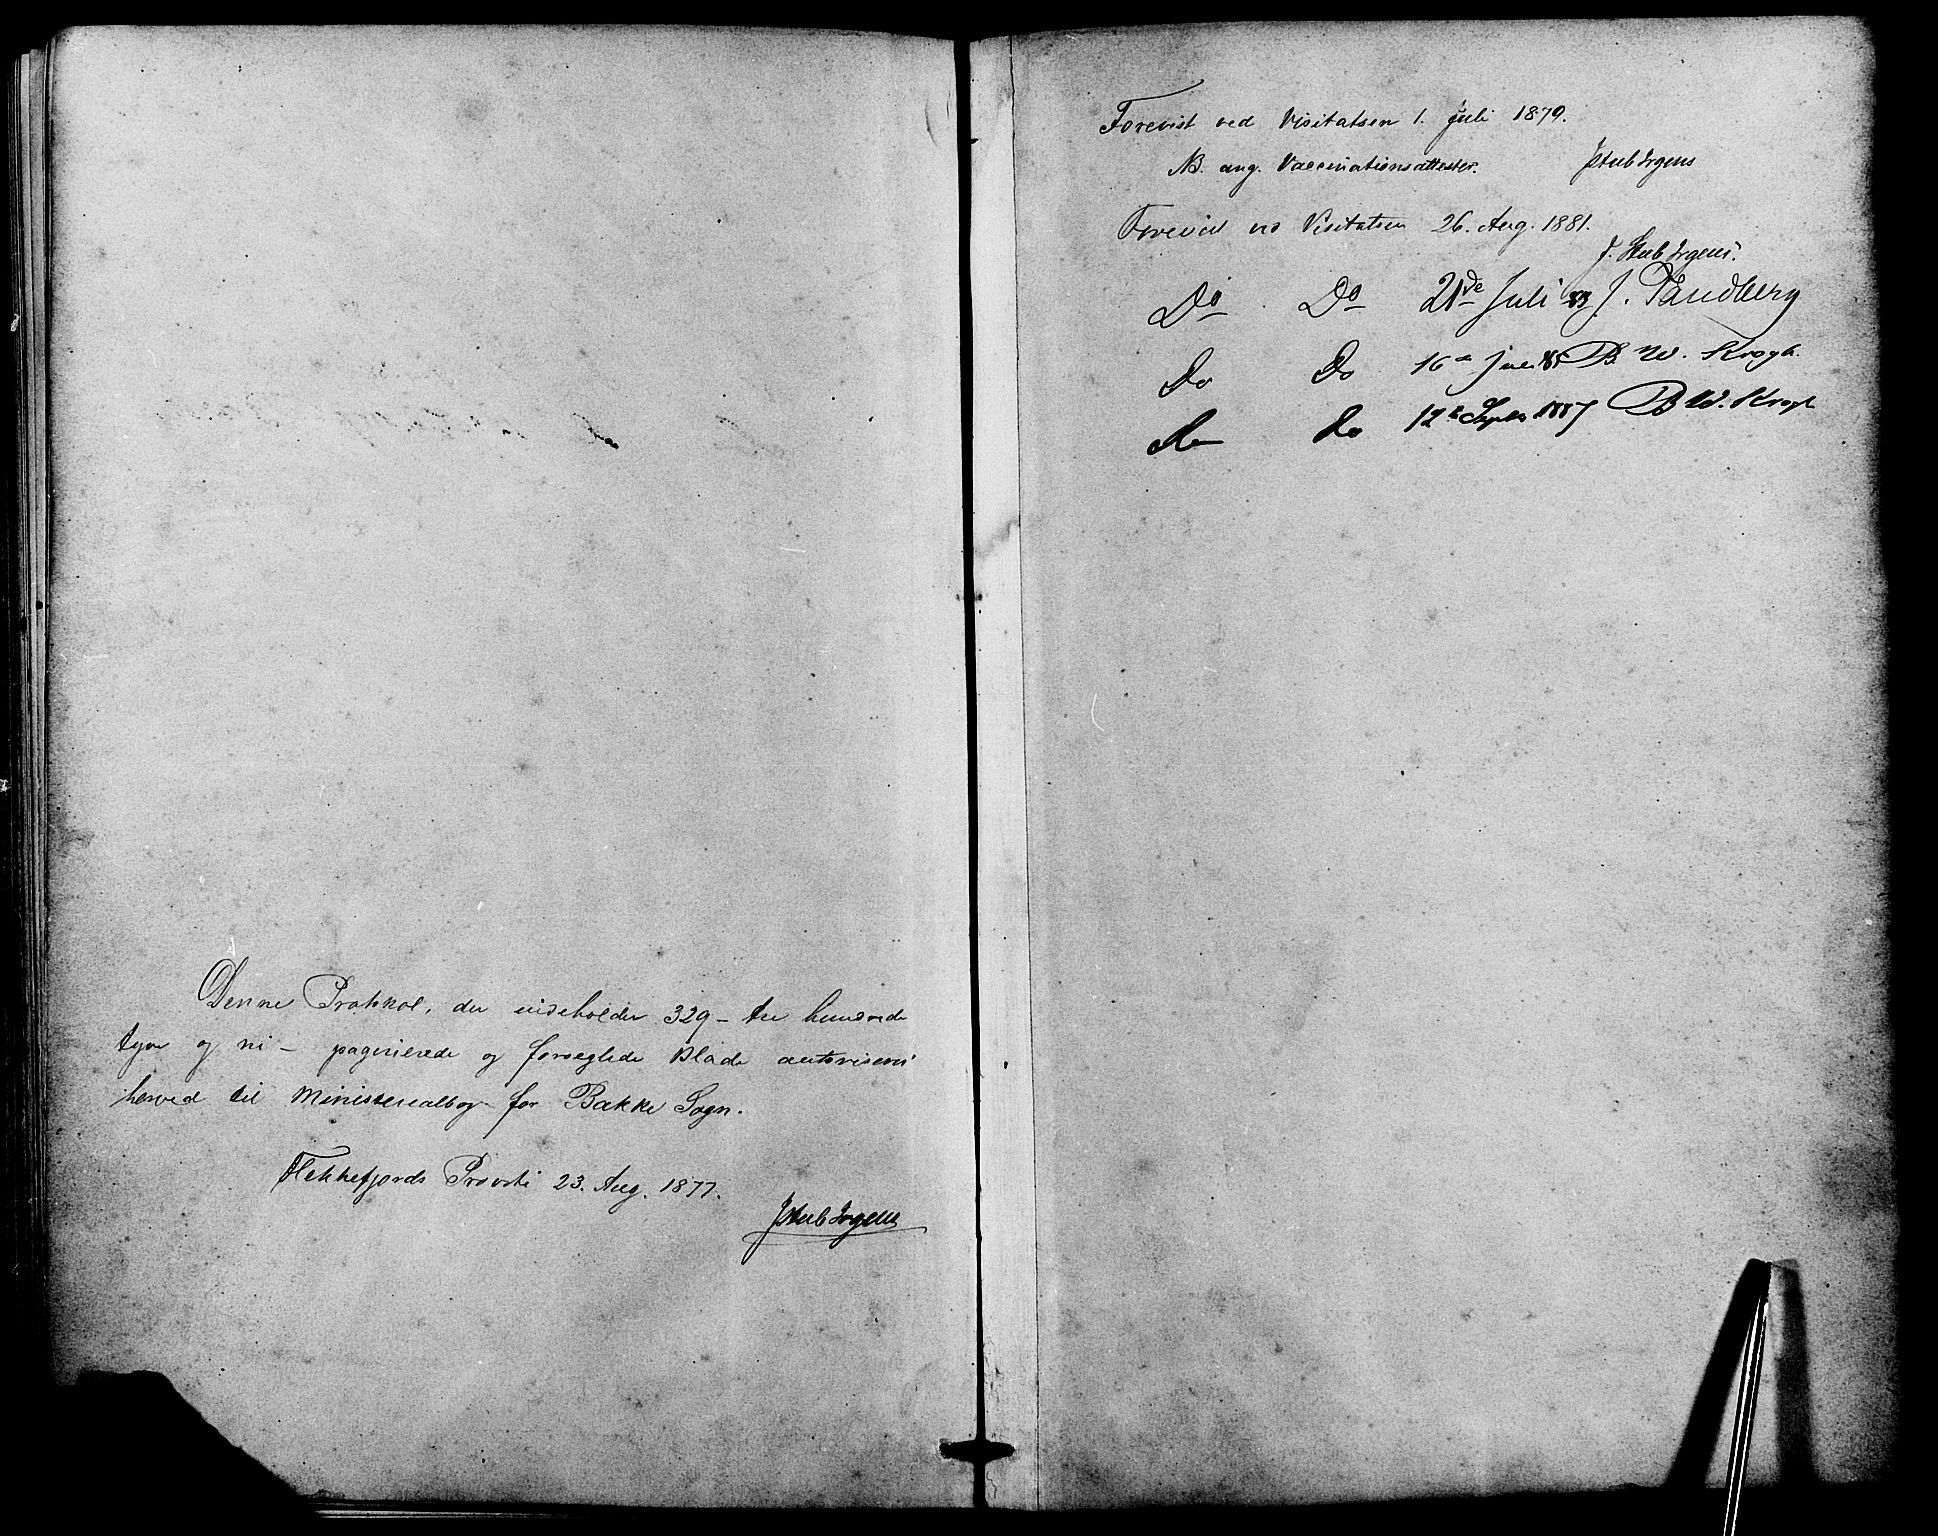 Denne Protokol, der indeholder 329 – tre hundrede
tyve og ni – paginerede og forseglede Blade autoriseres
herved til Ministerialbog for Bakke Sogn.
Flekkefjords Provsti 23. Aug. 1877.
JStub Irgens
Forevist ved Visitatsen 1. Juli 1879.
NB. ang. Vaccinationsattester. JStub Irgens
Forevist ved Visitatsen 26. Aug. 1881.
J. Stub Irgens.
Do Do 21de Juli 83 J. Sandberg
Do Do 16de Juli 85 B W. Krogh.
Do Do 12te Septbr 1887 B W. Krogh